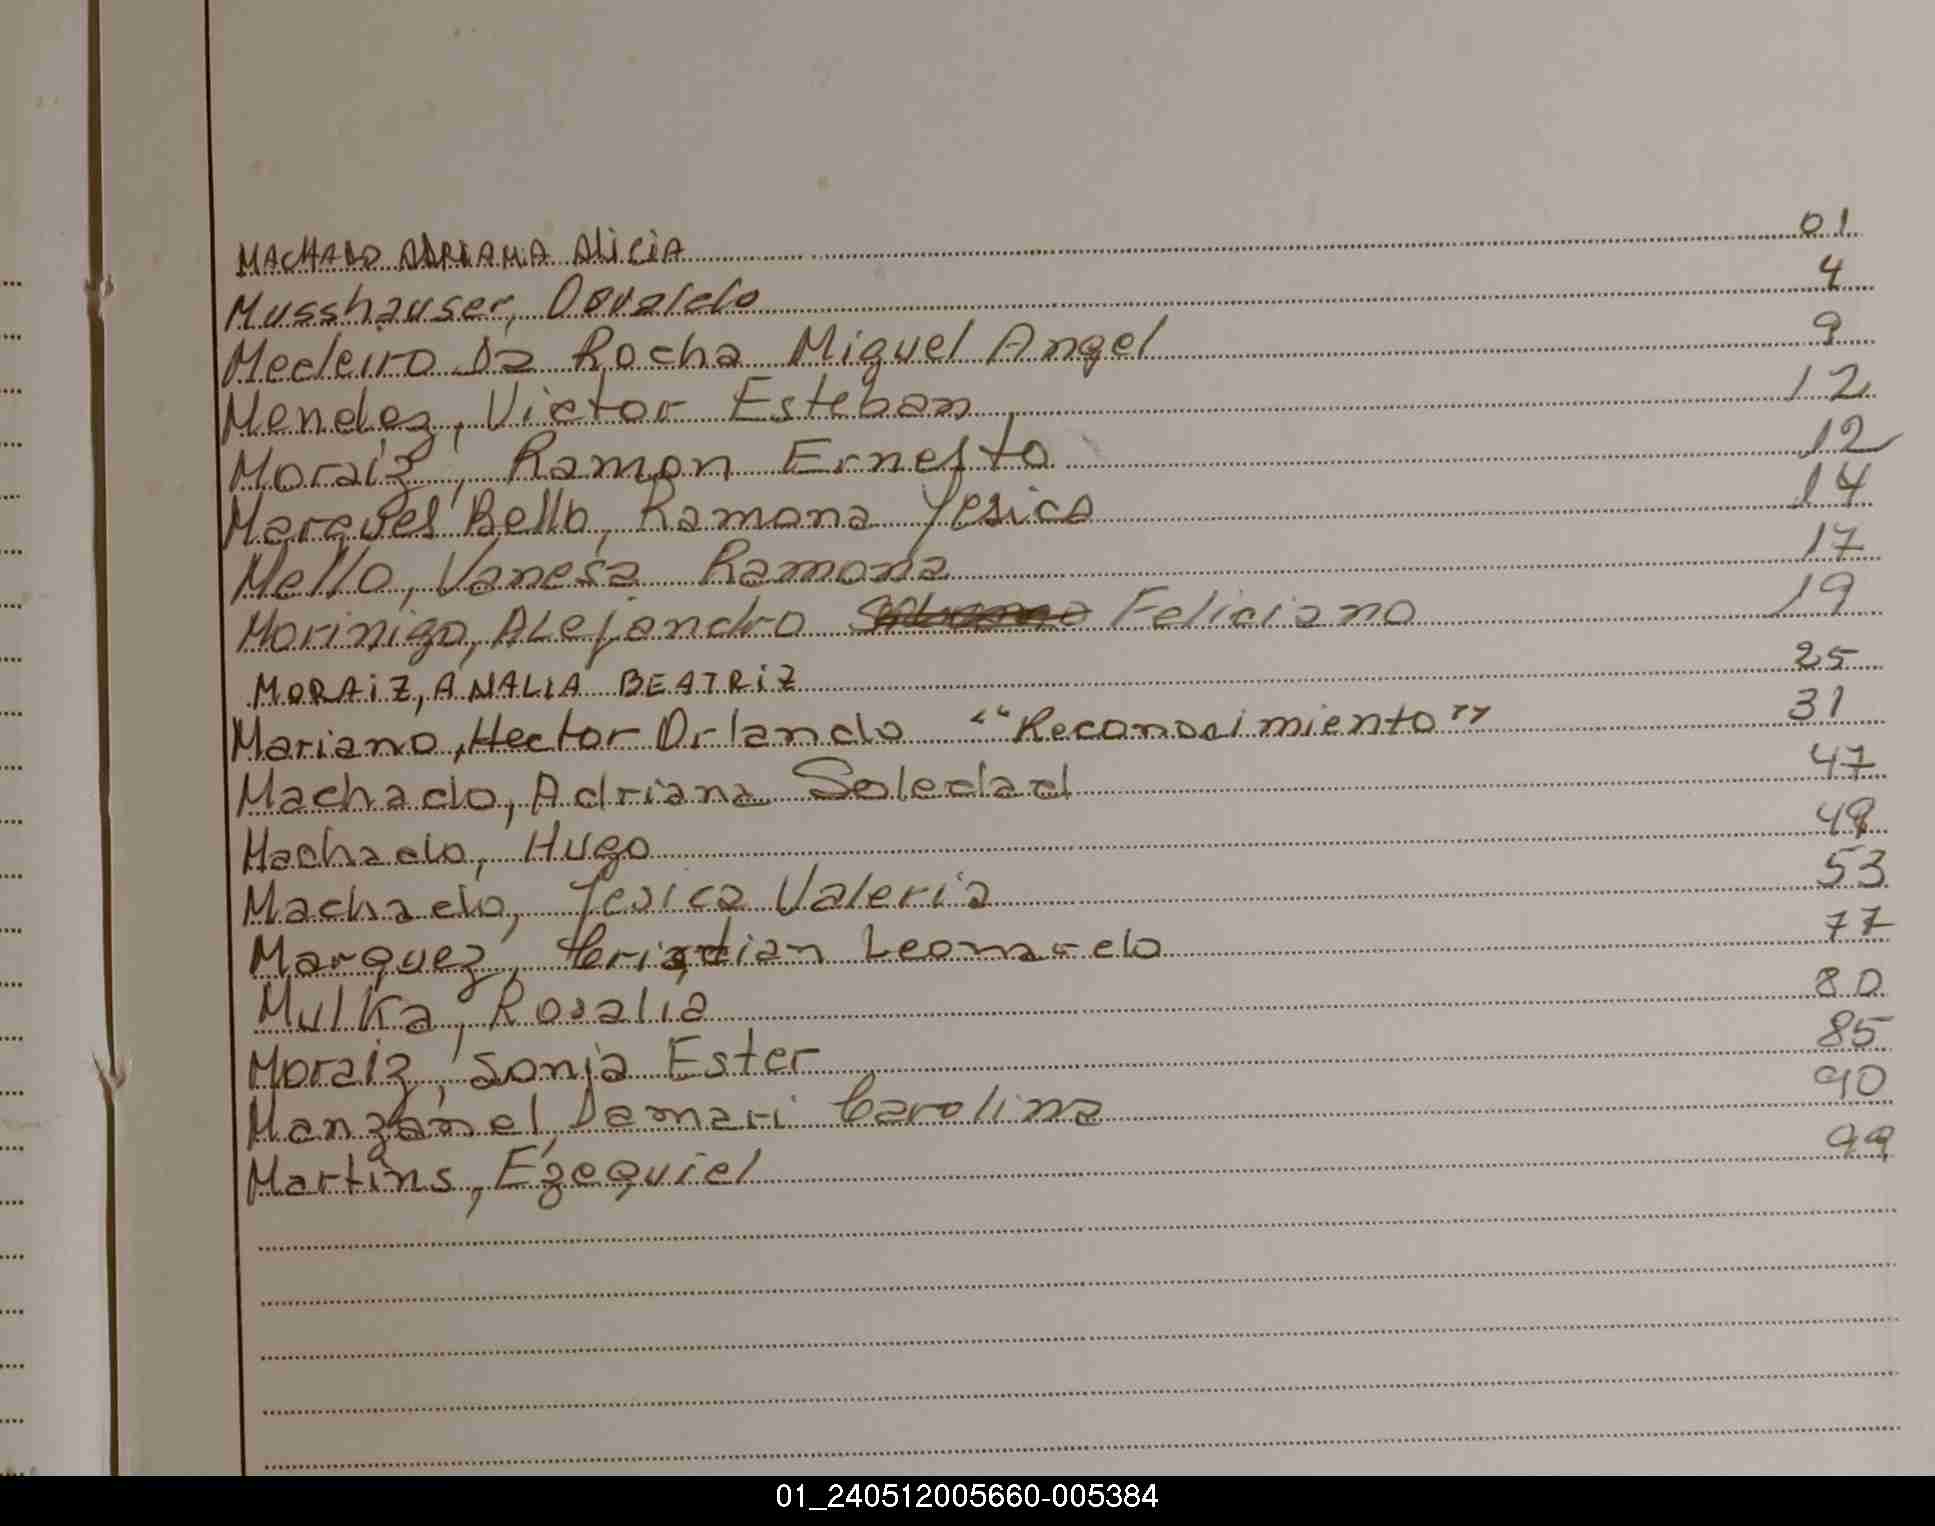 MACHADO ADRIANA ALICIA 01
Musshauser, Osvaldo 4
Medeiro Da Rocha Miguel Angel 9
Mendez, Victor Esteban 12
Moraiz, Ramon Ernesto 12
Marques Bello, Ramona Yesica 14
Mello, Vanesa Ramona 17
Morinigo, Alejandro Feliciano 19
MORAiZ, ANALIA BEATRiZ 25
Mariano, Hector Orlando "Reconocimiento" 31
Machado, Adriana Soledad 47
Machado, Hugo 49
Machado, Yesica Valeria 53
Marquez, Cristian Leonardo 77
Mulka, Rosalia 80
Moraiz, Sonja Ester 85
Manzanel, Damari Carolina 90
Martins, Ezequiel 99
01_240512005660-005384